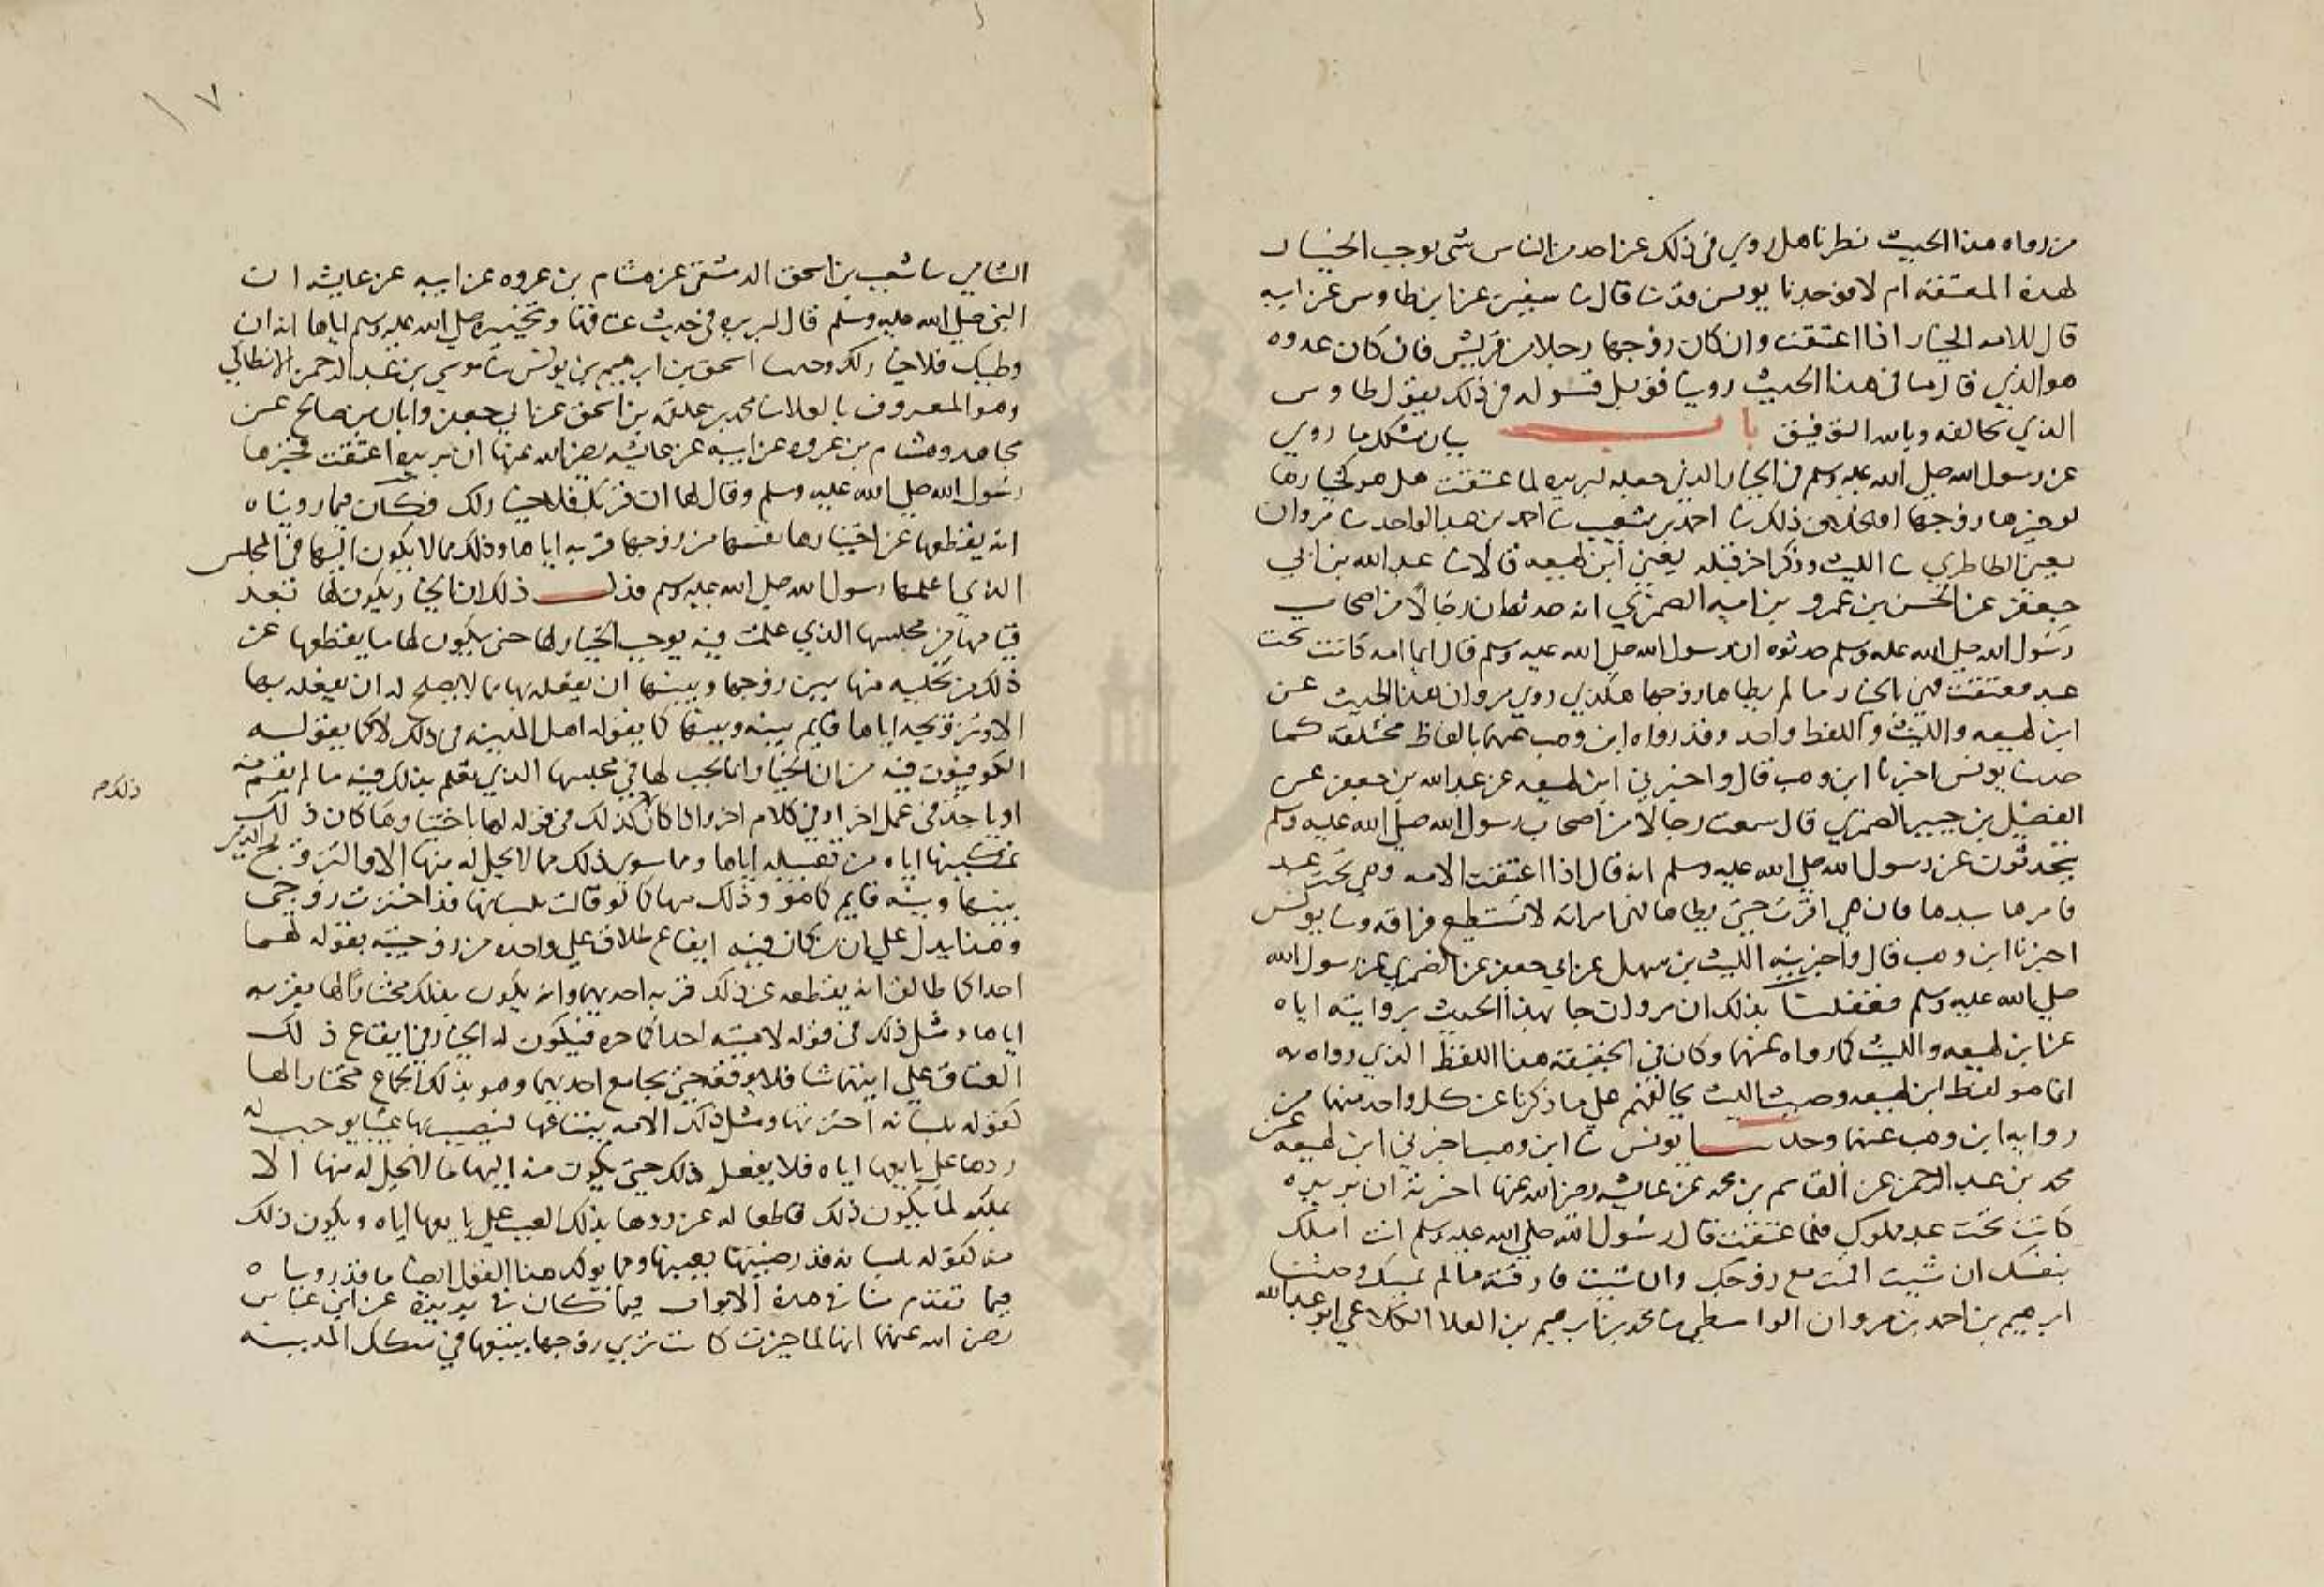 من رواه هذا الحديث نظرنا هل روي في ذلك عن احد من الناس شي يوجب الخيار
لهذه المعتقة ام لا فوجدنا يونس قد ثنا قال ثنا سفين عن ابن طاوس عن ابيه
قال للامه الخيار اذا اعتقت وان كان زوجها رجلا من قريش فان كان عدوه
هو الذي قال ما في هذا الحديث روينا فقوبل قوله في ذلك بقول طاوس
الذي يخالفه وبالله التوفيق باب بيان مشكل ما روي
عن رسول الله صلى الله عليه وسلم في الخيار الذي جعله لبريره لما عتقت هل هو كخيارها
لو خيرها زوجها او بخلاف ذلك ثنا احمد بن شعيب ثنا احمد بن عبد الواحد ثنا مروان
يعني الطاطري ثنا الليث وذكر اخر قبله يعني ابن لهيعه قالا ثنا عبد الله بن ابي
جعفر عن الحسن بن عمرو بن اميه الضمري انه حدثه ان رجالا من اصحاب
رسول الله صلى الله عليه وسلم حدثوه ان رسول الله صلى الله عليه وسلم قال ايما امه كانت تحت
عبد فعتقت فهي بالخيار ما لم يطاها زوجها هكذي روي مروان هذا الحديث عن
ابن لهيعه والليث واللفظ واحد وقد رواه ابن وهب عنهما بالفاظ مختلفه كما
حدثنا يونس اخبرنا ابن وهب قال واخبرني ابن لهيعه عن عبد الله بن جعفر عن
الفضيل بن حبيب الضمري قال سمعت رجالا من اصحاب رسول الله صلى الله عليه وسلم
يتحدثون عن رسول الله صلى الله عليه وسلم انه قال اذا اعتقت الامه وهي تحت عبد
فامرها بيدها فان هي اقرت حتى يطاها فهي امراته لا تستطيع فراقه وثنا يونس
اخبرنا ابن وهب قال واخبرنيه الليث بن سهل عن ابي جعفر عن الضمري عن رسول الله
صلى الله عليه وسلم فعقلنا بذلك ان مروان جا بهذا الحديث بروايته اياه
عن ابن لهيعه والليث كما رواه عنهما وكان في الحقيقة هذا اللفظ الذي رواه به
انما هو لفظ ابن لهيعه وحديث الليث يخالفهم على ما ذكرنا عن كل واحد منهما من
روايه ابن وهب عنهما وحدثنا يونس ثنا ابن وهب اخبرني ابن لهيعه عن
محمد بن عبد الرحمن عن القاسم بن محمد عن عايشه رضي الله عنها اخبرته ان بريره
كانت تحت عبد مملوك فلما عتقت قال رسول الله صلى الله عليه وسلم انت املك
بنفسك ان شيت اقمت مع زوجك وان شيت فارقته ما لم يمسك وحدثنا
ابرهيم بن احمد بن مروان الواسطي ثنا محمد بن ابرهيم بن العلا الكلاعي ابو عبد الله
الشامي ثنا شعيب بن اسحق الدمشقي عن هشام بن عروه عن ابيه عن عايشه ان
النبي صلى الله عليه وسلم قال لبريره في حديث عتاقها وتخييره صلى الله عليه وسلم اياها انه ان
وطيك فلا خيار لك وحدثنا اسحق بن ابرهيم بن يونس ثنا موسي بن عبد الرحمن الانطاكي
وهو المعروف بالعلا ثنا محمد بن سلمه بن اسحق عن ابي جعفر وابان بن صالح عن
مجاهد وهشام بن عروه عن ابيه عن عايشه رضي الله عنها ان بريره اعتقت فخيرها
رسول الله صلى الله عليه وسلم وقال لها ان قربك فلا خيار لك فكان فيما رويناه
انه يقطعها عن اختيارها نفسها من زوجها قربه اياها وذلك مما لا يكون اليها في المجلس
الذي اعلمها رسول الله صلى الله عليه وسلم فدل ذلك ان الخيار يكون لها بعد
قيامها من مجلسها الذي علمت فيه بوجوب الخيار لها حتى يكون لها ما يقطعها عن
ذلك من تخليه منها بين زوجها وبينها ان يفعله بها مما لا يصلح له ان يفعله بها
الا وتزويجه اياها قايم بينه وبينها كما يقوله اهل المدينه في ذلك لا كما يقوله
الكوفيون فيه من ان الخيار انما يجب لها في مجلسها الذي تعلم بذلك فيه ما لم يقم منه
او ياخذ في عمل اخر او في كلام اخر واذا كان كذلك في قوله لها باختيارها كان ذلك
ذلك م
تمكينها اياه من تقبيله اياها ومما سوى ذلك مما لا يحل له منها الا والتزويج الذي
بينها وبينه قايم كما هو وذلك منها كما لو قالت بلسانها قد اخترت زوجي
وهذا يدل على ان من كان منه ايقاع طلاق على واحده من زوجتيه بقوله لهما
احداكما طالق انه يقطعه عن ذلك قربه احديهما وانه يكون بذلك مختارا لها بقربه
اياها ومثل ذلك في قوله لامتيه احداكما حره فيكون له الخيار في ايقاع ذلك
العتاق على ايتهما شا فلا يوقعه حتى يجامع احديهما وهو بذلك الجماع مختارا لها
كقوله بلسانه اخترتها ومثل ذلك الامه يبتاعها فيصيب بها عيبا يوجب له
ردها على بايعها اياه فلا يفعل ذلك حتى يكون منه اليها ما لا يحل له منها الا
بملكه لها يكون ذلك قاطعا له عن ردها بذلك العيب على بايعها اياه ويكون ذلك
منه كقوله بلسانه قد رضيتها بعيبها ومما يوكد هذا القول ايضا ما قد رويناه
فيما تقدم منا في هذه الابواب فيما كان في بريره عن ابن عباس
رضي الله عنهما انها لما خيرت كانت تري زوجها يتبعها في سكك المدينه